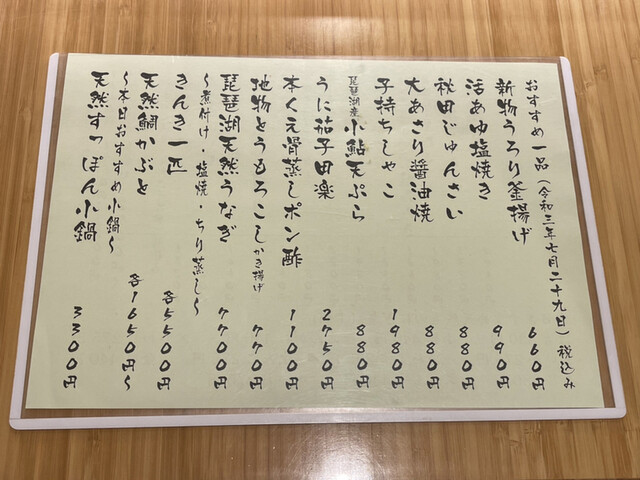 おすすめ一品(令和三年七月二十九日)税込み
新物うろり釜揚げ 660円
活あゆ塩焼き 990円
秋田じゅんさい 880円
大あさり醤油焼 880円
子持ちしゃこ 1980円
琵琶湖産小鮎天ぷら 880円
うに茄子田楽 2750円
本くえ骨蒸しポン酢 1100円
地物とうもろこしかき揚げ 770円
琵琶湖天然うなぎ 7700円
〜煮付け・塩焼・ちり蒸し〜
きんき一匹 各5500円
天然鯛かぶと 各1650円〜
〜本日おすすめ小鍋〜
天然すっぽん小鍋 3300円